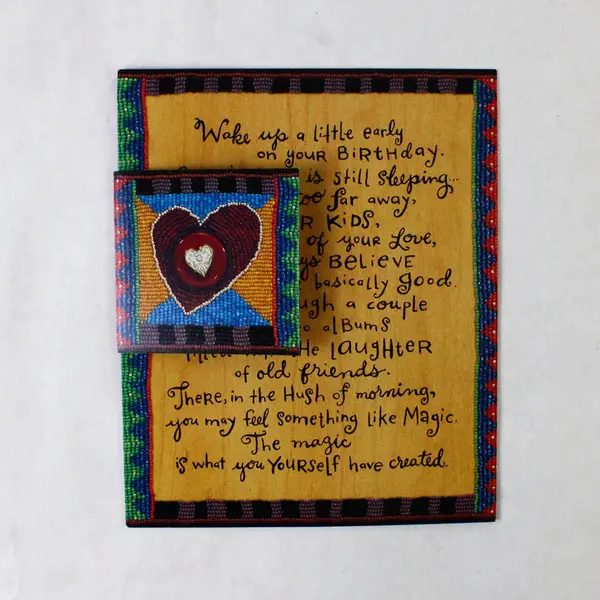 Wake up a little early
on your BiRTHDAY.
is still sleeping...
too far away,
KiDS,
of your Love,
BELiEVE
basically good.
a couple
alBums
laughter
of old friends.
There, in the Hush of morning,
you may feel something like Magic.
The magic
is what you YOURSELF have created.